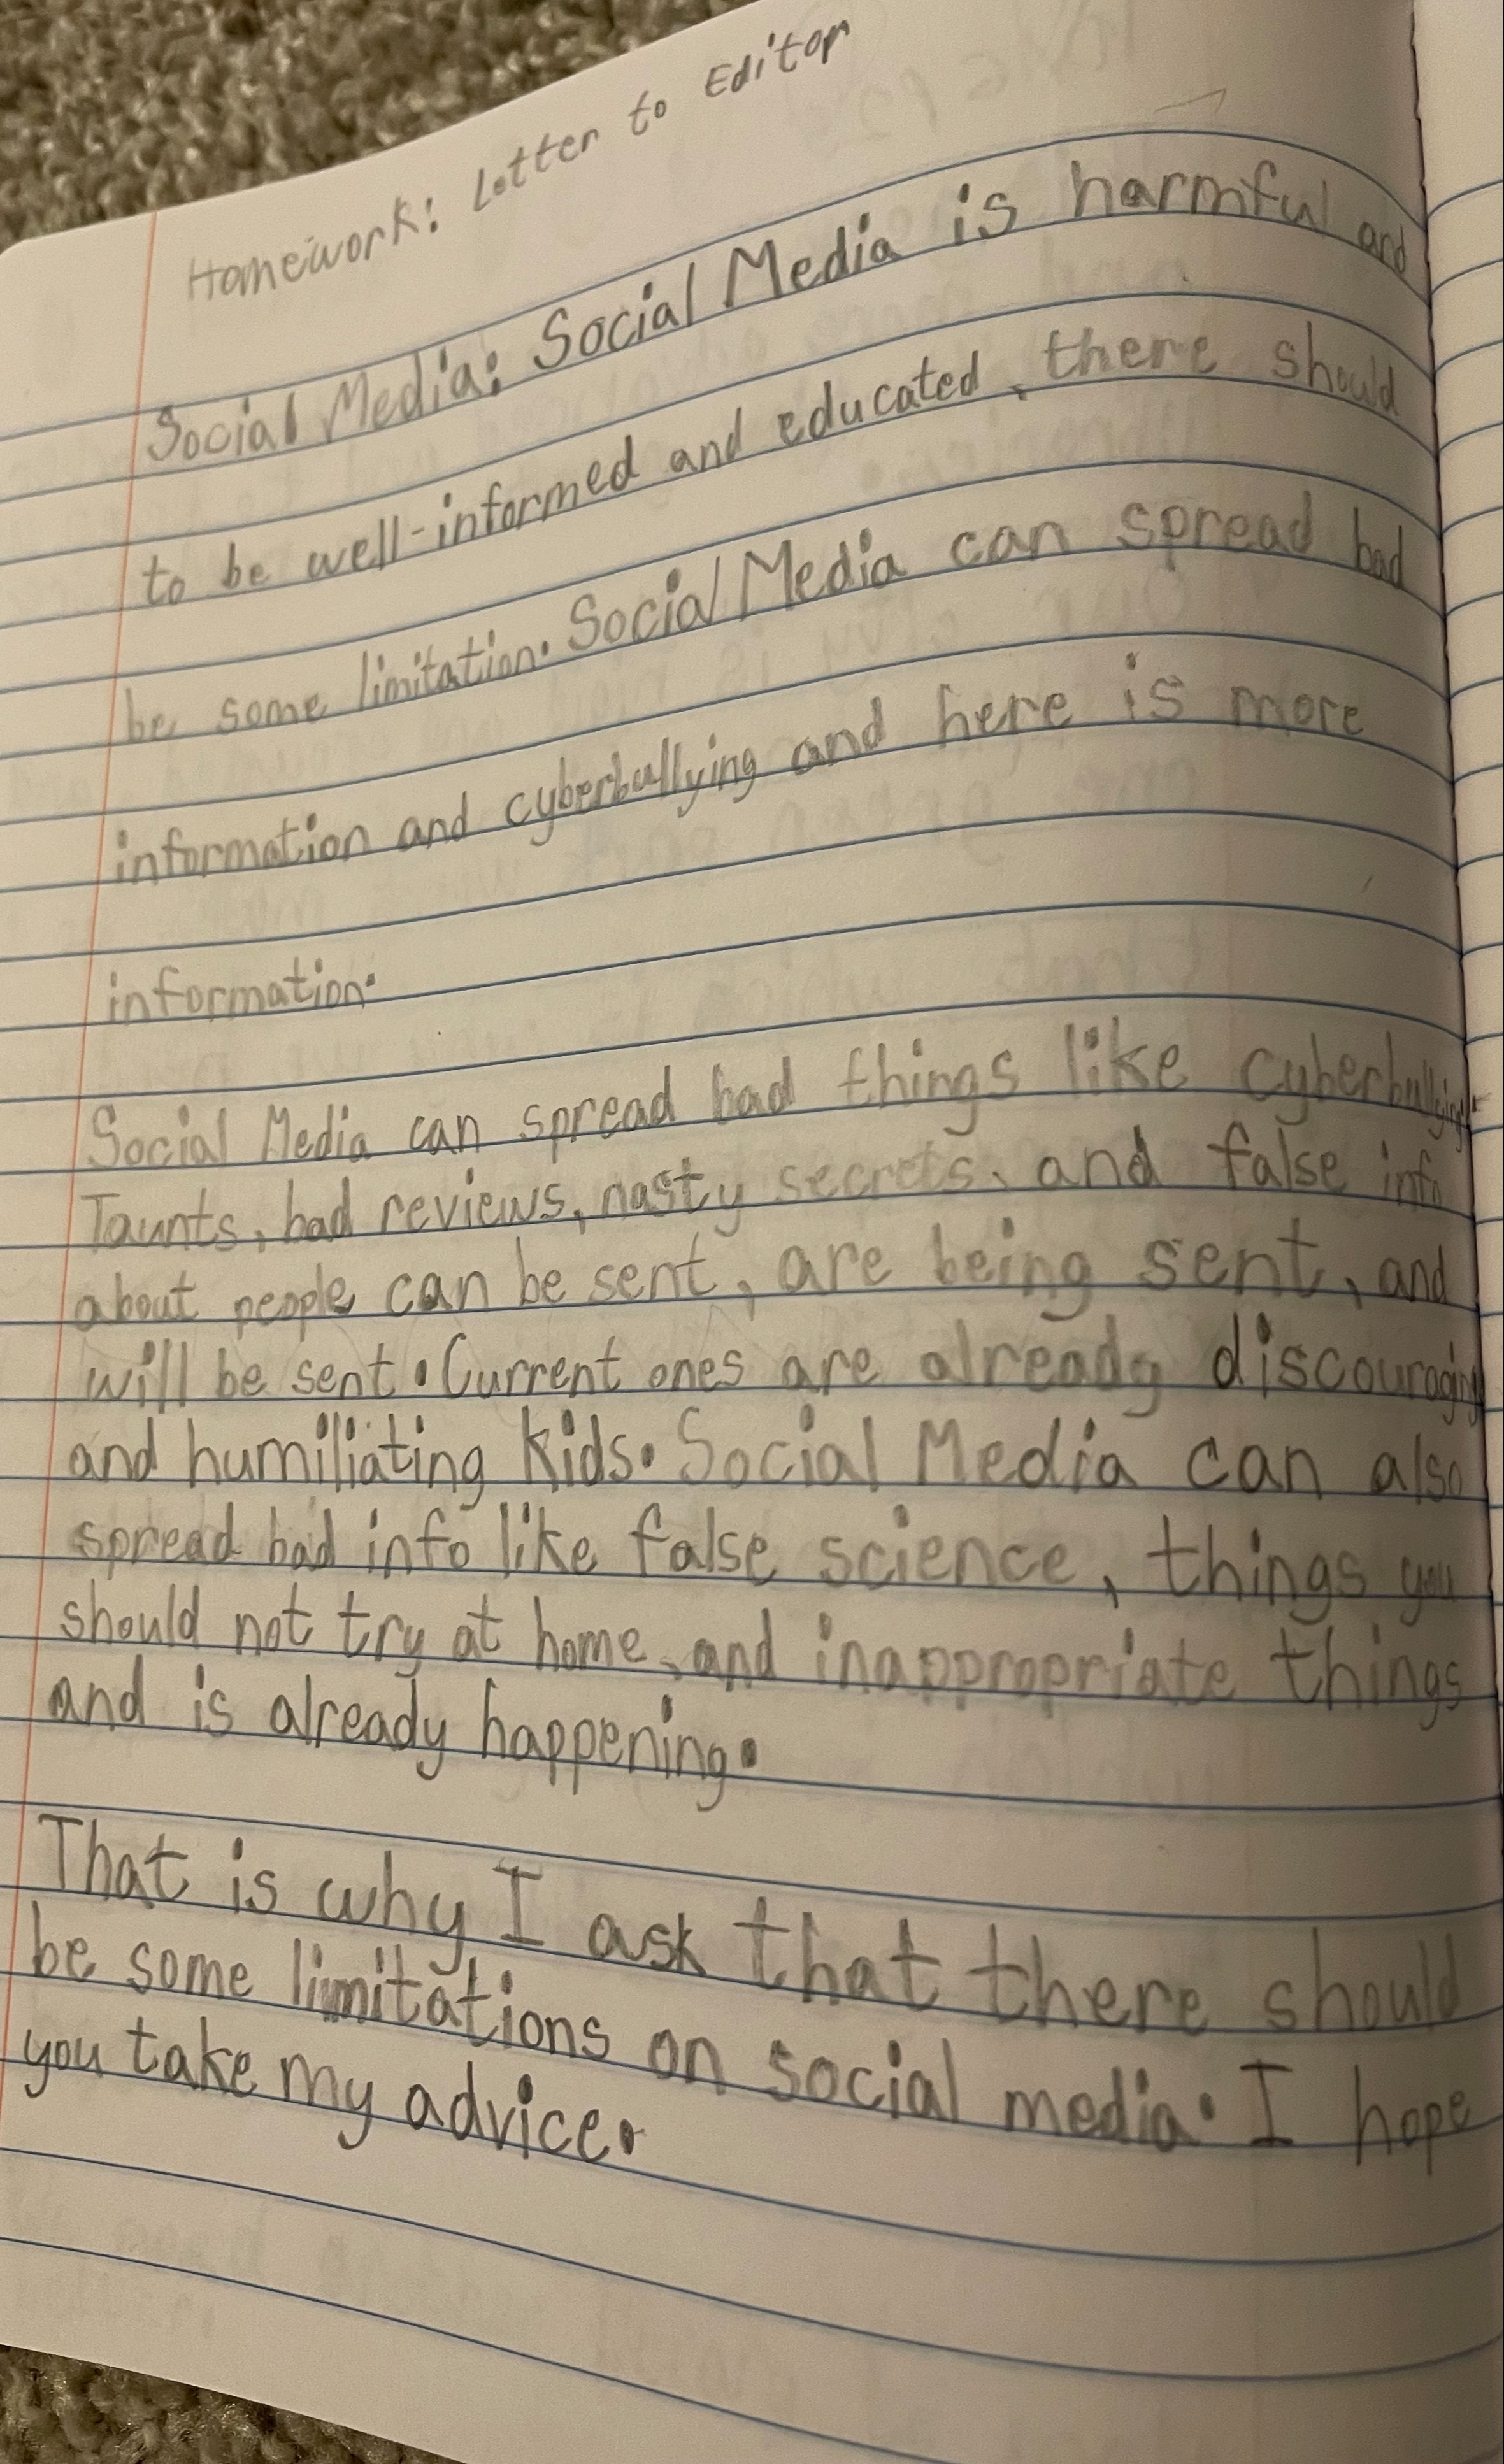 Homework: Letter to Editor
Social Media: Social Media is harmful and
to be well-informed and educated, there should
be some limitation. Social Media can spread bad
information and cyberbullying and here is more
information.
Social Media can spread bad things like cyberbullying.
Taunts, bad reviews, nasty secrets, and false info
about people can be sent, are being sent, and
will be sent. Current ones are already discouraging
and humiliating kids. Social Media can also
spread bad info like false science, things you
should not try at home, and inappropriate things
and is already happening.
That is why I ask that there should
be some limitations on social media. I hope
you take my advice.